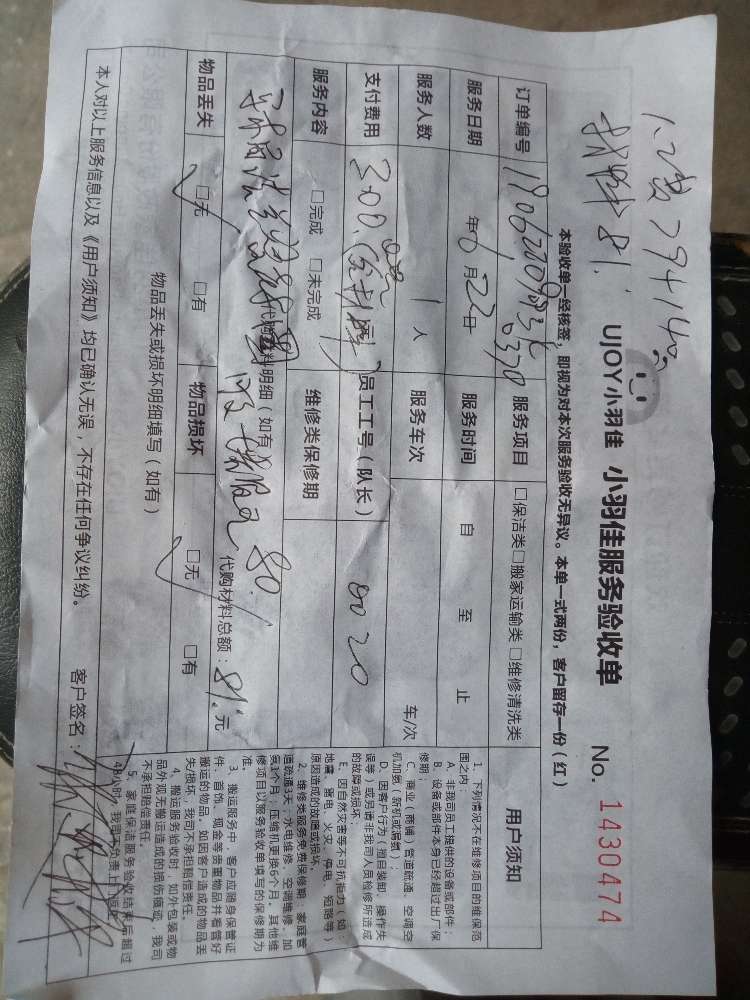 工费294140
材料81.
UJOY小羽佳 小羽佳服务验收单 No. 1430474
本验收单一经核签，即视为对本次服务验收无异议。本单一式两份，客户留存一份（红）
订单编号 服务项目 □保洁类 □搬家运输类 □维修清洗类
服务日期 年6月22日 服务时间 自 至 止
服务人数 1人 服务车次 车/次
支付费用 300. 员工工号（队长） 0020
服务内容 □完成 □未完成 维修类保修期
代购材料明细（如有） 80. 代购材料总额：81.元
物品丢失 □无 □有 物品损坏 □无 □有
物品丢失或损坏明细填写（如有）
本人对以上服务信息以及《用户须知》均已确认无误，不存在任何争议纠纷。 客户签名：
用户须知
1、下列情况不在维修项目的维保范
围之内：
A、非我司员工提供的设备或部件；
B、设备或部件本身已经超过出厂保
修期；
C、商业（商铺）管道疏通、空调空
机加氨（新机或加氨）；
D、因客户行为（擅自装卸、操作失
误等）或另请非我司人员检修所造成
的故障或损坏；
E、因自然灾害等不可抗拒力（如：
地震、雷电、火灾、停电、短路等）
原因造成的故障或损坏。
2、维修类服务免费保修期：家庭管
道疏通3天；水电维修、空调维修、加
氨1个月；压缩机更换6个月。其他维
修项目以服务验收单填写的保修期为
准。
3、搬运服务中，客户应随身保管证
件、首饰、现金等贵重物品并看管好
搬运的物品。如因客户造成的物品丢
失损坏，我司不承担赔偿责任。
4、搬运服务验收时，如外包装或物
品外观无搬运造成的损伤痕迹，我司
不承担赔偿责任。
5、家庭保洁服务验收结束后超过
48小时，我司不负责上门返工